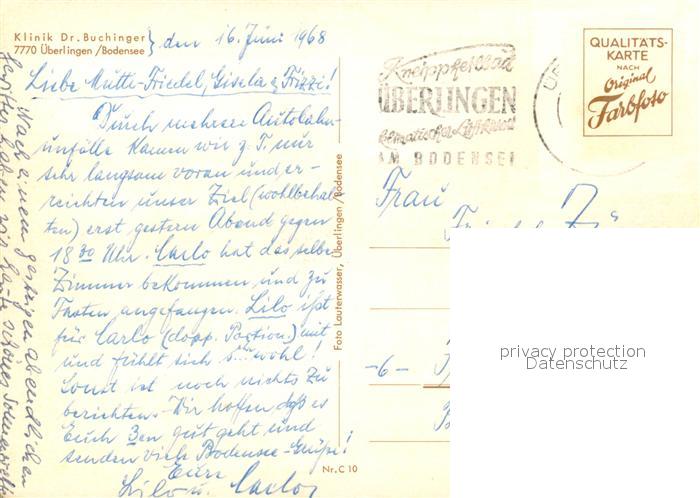 Klinik Dr. Buchinger
7770 Überlingen /Bodensee
den 16. Juni 1968
Liebe Mutti-Friedel, Gisela u. Frizzi!
Durch mehrere Autobahn-
unfälle kamen wir z. T. nur
sehr langsam voran und er-
reichten unser Ziel (wohlbehal-
ten) erst gestern Abend gegen
18 30 Uhr. Carlo hat dasselbe
Zimmer bekommen und zu
Fasten angefangen. Lilo ißt
für Carlo (dopp. Portion) mit
und fühlt sich wohl!
Sonst ist noch nichts zu
berichten. Wir hoffen daß es
Euch 3en gut geht und
senden viele Bodensee-Grüße!
Eure
Lilo u. Carlo
Nach einem gestrigen abendlichen
haben wir heute schönes
Foto Lauterwasser, Überlingen/Bodensee
Nr. C 10
Kneippheilbad
ÜBERLINGEN
klimatischer Luftkurort
AM BODENSEE
QUALITÄTS-
KARTE
NACH
Original
Farbfoto
Frau
-6-
privacy protection
Datenschutz